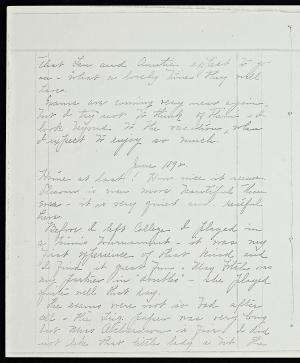 that Lou and Auntie expect to go
on - What a lovely time they will
have.
Exams are coming very near again,
but I try not to think of them and
look beyond to the vacation, when
I expect to enjoy so much.
June 1892
Home at last! How nice it seems.
is even more beautiful than
ever - it is very quiet and restful
here.
Before I left College I played in
a Tennis Tournament - it was my
first experience of that kind, and
I find it great fun - May was
my partner in doubles - she played
quite well that day.
The exams were not so bad after
all - the Trig. paper was very long
but Miss is fair. I did
not like that little lady a bit the